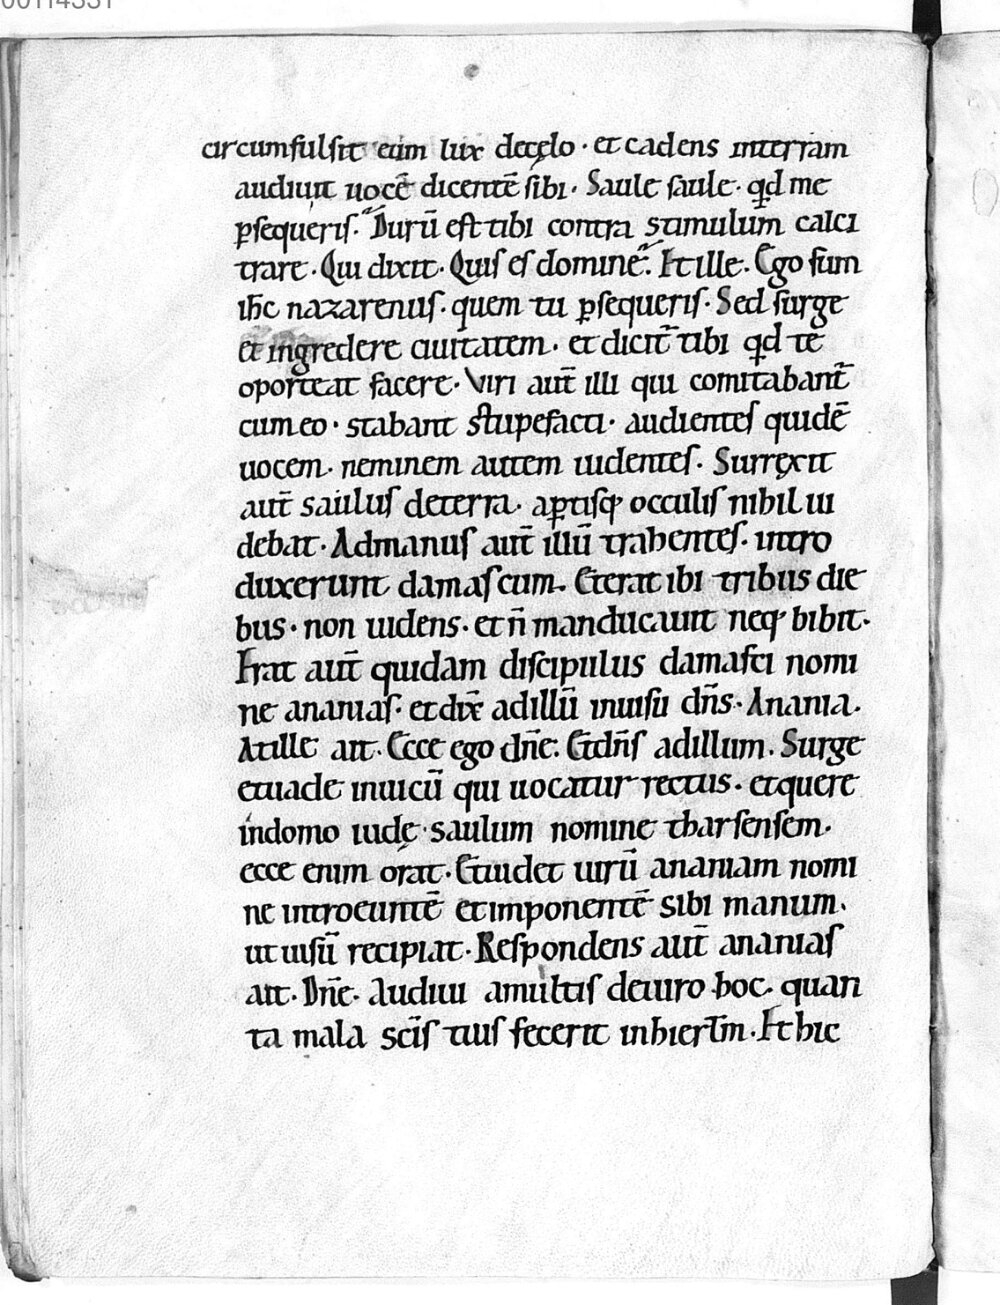 00114331
circumfulsit eum lux decęlo · et cadens interram
audiuit uocē dicentē sibi · Saule saule · qd me
ꝑsequeris · Durū est tibi contra stimulum calci
trare · Qui dixit · Quis es domine · Et ille · Ego sum
ihc nazarenus · quem tu ꝑsequeris · Sed surge
et ingredere ciuitatem · et dicit̄ tibi qd te
oporteat facere · Viri aut̄ illi qui comitabant̄
cum eo · stabant stupefacti · audientes quidē
uocem · neminem autem uidentes · Surrexit
aut̄ saulus deterra · aꝑtisq; occulis nihil ui
debat · Admanus aut̄ illū trahentes · intro
duxerunt damascum · Eterat ibi tribus die
bus · non uidens · et n̄ manducauit neq; bibit ·
Erat aut̄ quidam discipulus damasci nomi
ne ananias · et dix̄ adillū inuisu dn̄s · Anania ·
Atille ait · Ecce ego dn̄e · Etdn̄s adillum · Surge
etuade inuicū qui uocatur rectus · etquere
indomo iudę · saulum nomine tharsensem ·
ecce enim orat · Etuidet uirū ananiam nomi
ne introeuntē etimponentē sibi manum ·
ut uisū recipiat · Respondens aut̄ ananias
ait · Dn̄e · Audiui amultis deuiro hoc · quan
ta mala sc̄is tuis fecerit inhierlm̄ · Et hic